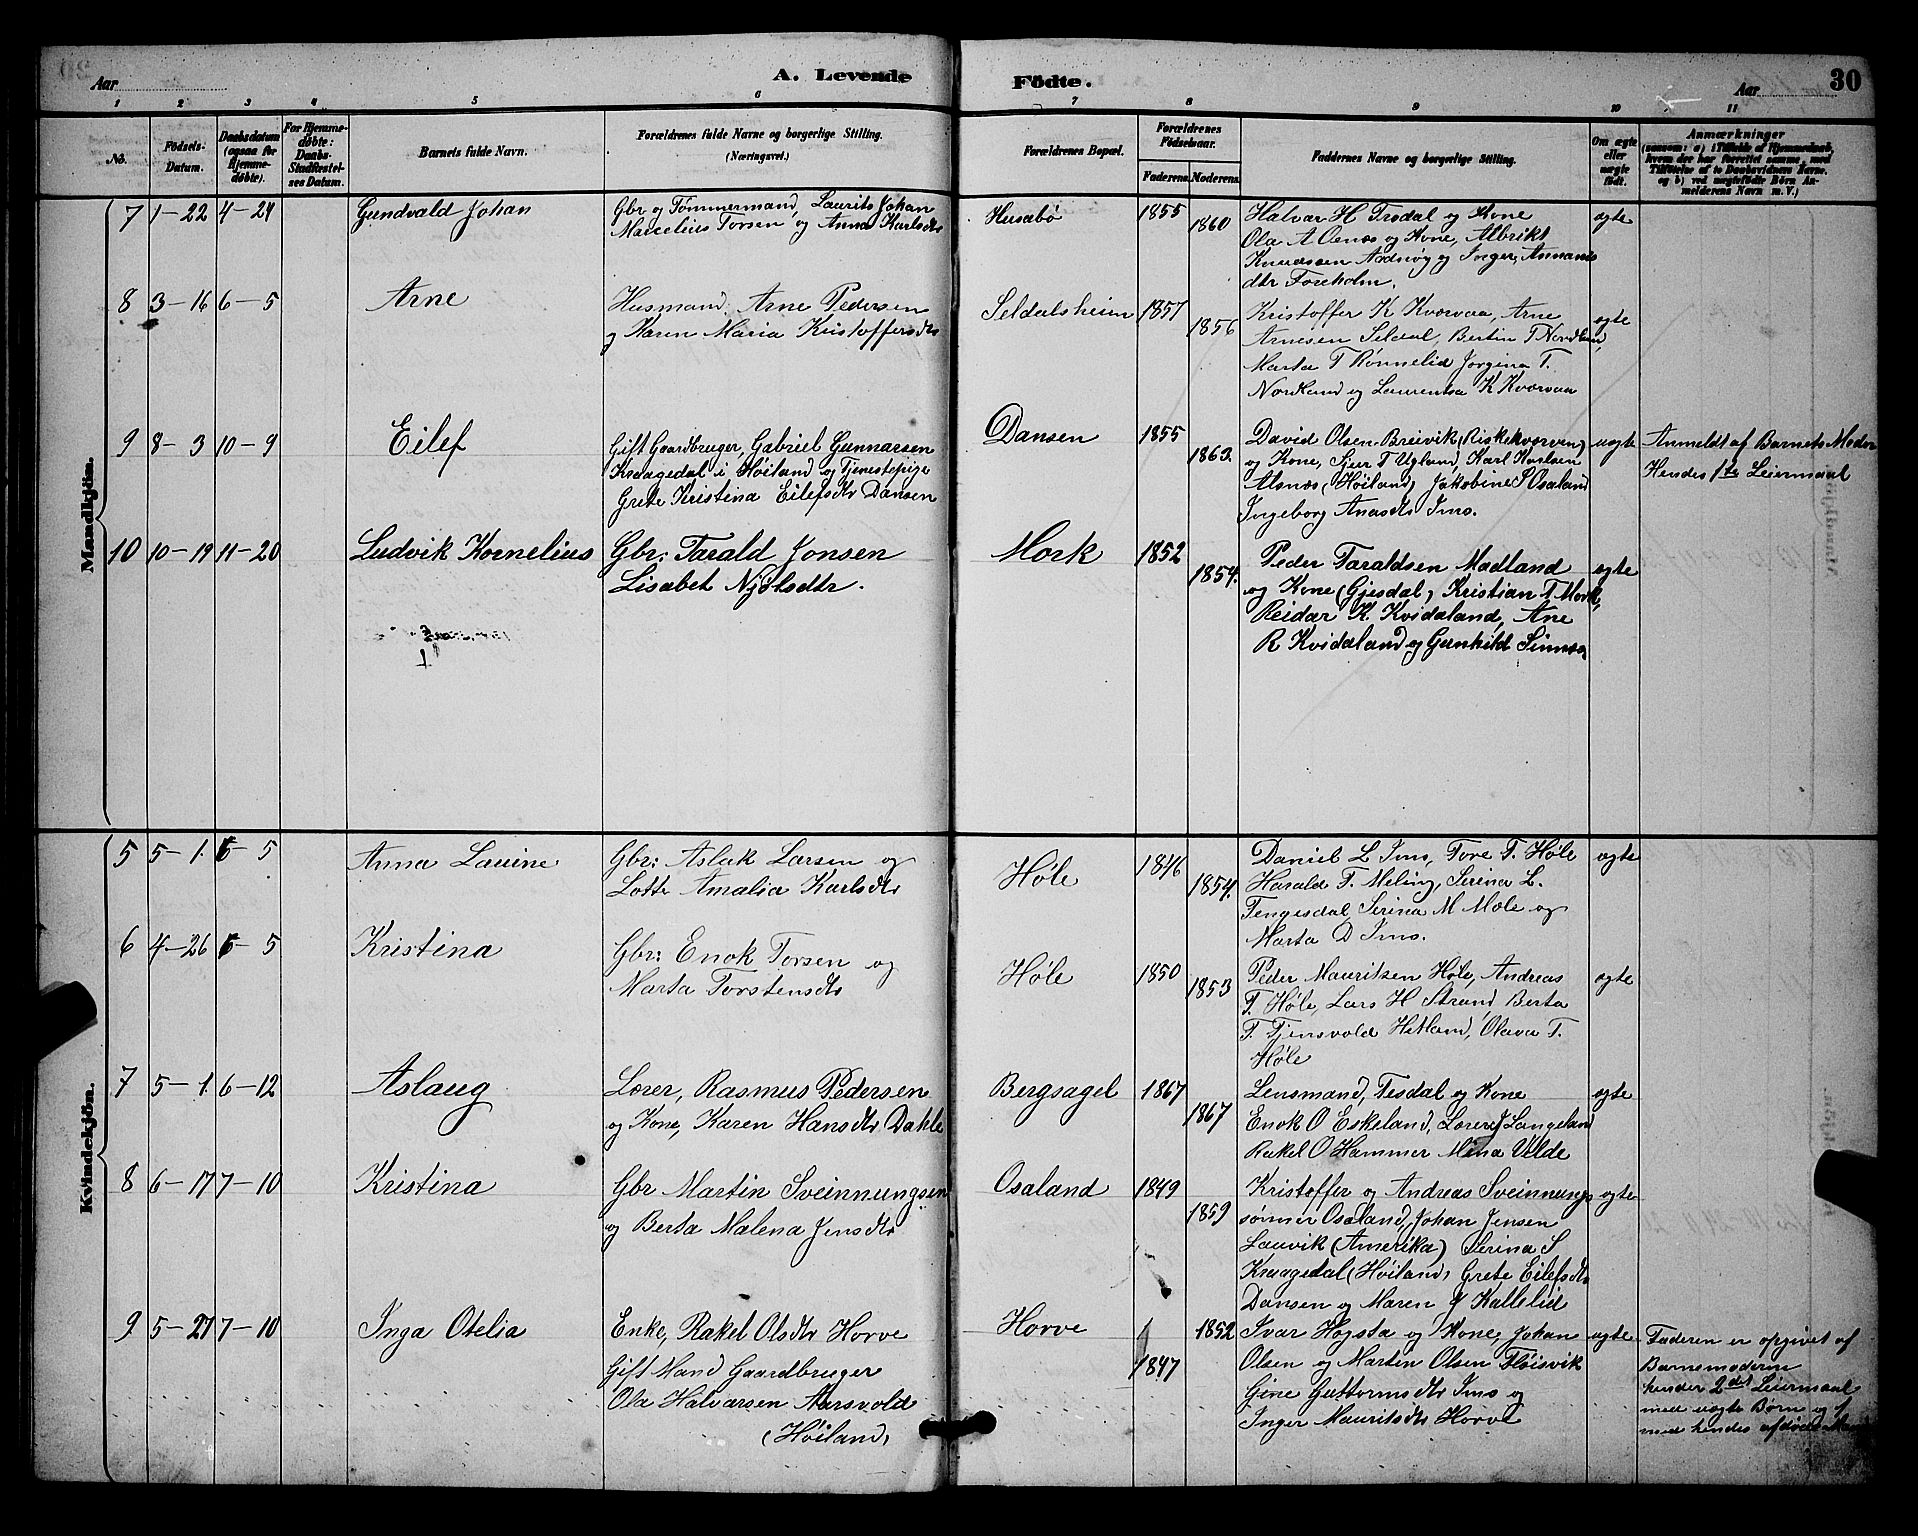 Aar
A. Levende
Födte.
Aar
30
1 2 3 4 5 6 7 8 9 10 11
No.
Födsels-Datum.
Daabsdatum (ogsaa for Hjemme-døbte).
For Hjemme-døbte: Daabs-Stadfæstel-ses Datum.
Barnets fulde Navn.
Forældrenes fulde Navne og borgerlige Stilling. (Næringsvei.)
Forældrenes Bopæl.
Forældrenes Födselsaar.
Faderens. Moderens.
Faddernes Navne og borgerlige Stilling.
Om ægte eller uægte født.
Anmærkninger
(saasom: a) i Tilfælde af Hjemmedaab, hvem der har forrettet samme, med Tilføielse af to Daabsvidners Navne. og b) ved uægtefødte Börn An-melderens Navn m. V.)
Mandkjön.
7 1-22 4-24 Gundvald Johan
Gbr og Tømmermand, Laurits Johan
Marcelius Torsen og Anna Karlsdtr
Husabø 1855 1860
Halvar H Trodal og Kone
Ola A Oenæs og Kone, Albrikt
Knudssen Adnøy og Inger Annanis
dtr Foreholm.
ægte
8 3-16 6-5 Arne
Husmand: Arne Pedersen
og Karen Maria Kristoffersdtr
Seldalsheim 1857 1856
Kristoffer K Kværvaa, Arne
Arnesen Seldal, Bertin T Nordland,
Marta T Rønnelid Jorgina T.
Nordland og Laurentsa K Kværvaa
ægte
9 8-3 10-9 Eilef
Gift Gaardbruger, Gabriel Gunnarsen
Kraagedal i Høiland og Tjenestepige
Grete Kristina Eilefsdtr Dansen
Dansen 1855 1863.
David Olsen Breivik (Riskekværven)
og Kone, Sjur T Ugland, Karl Karlsen
Alsnæs (Høiland) Jakobine S Osaland
Ingeborg Anasdtr Ims.
uægte
Anmeldt af Barnets Moder
Hendes 1te Leiermaal
10 10-19 11-20 Ludvik Kornelius
Gbr: Tarald Jonsen
Lisabet Njølsdtr.
Mork 1852 1854.
Peder Taraldsen Madland
og Kone (Gjesdal) Kristian T Mork,
Reidar K. Kvidaland, Ane
R Kvidaland og Gunhild Sinnes
ægte
Kvindekjön.
5 5-1. 6-5 Anna Lauine
Gbr: Aslak Larsen og
Lotte Amalia Karlsdtr
Høle 1846 1854.
Daniel L Ims, Tore T. Høle
Harald T. Meling, Serina L.
Tengesdal, Serina M Mæle og
Marta D Ims.
ægte
6 4-26 6-5 Kristina
Gbr: Enok Torsen og
Marta Torstensdtr
Høle 1850 1853
Peder Mauritzen Høle, Andreas
T. Høle, Lars H Strand, Berta
T. Tjensvold Hetland, Olava T.
Høle
ægte
7 5-1. 6-12 Aslaug
Lærer, Rasmus Pedersen
og Kone, Karen Hansdtr Dahle
Bergsagel 1867 1867
Lensmand, Tesdal og Kone
Enok O Eskeland, Lærer J Langeland
Rakel O Hammer Mina Velde
ægte
8 6-17 7-10 Kristina
Gbr Martin Sveinnungsen
og Berta Malena Jensdtr
Osaland 1849 1859
Kristoffer og Andreas Sveinnungs
sønner Osaland, Johan Jensen
Lauvik (Amerika) Serina S
Kraagedal (Høiland) Grete Eilefsdtr
Dansen og Maren J Kallelid
ægte
9 5-27 7-10 Inga Otelia
Enke, Rakel Olsdtr Horve
Gift Mand Gaardbruger
Ola Halvarsen Aarsvold
(Høiland)
Horve 1847 1852
Ivar Høgsta og Kone, Johan
Olsen og Martin Olsen Fløisvik
Gine Guttormsdtr Ims og
Inger Mauritsdtr Horve
uægte
Faderen er opgivet af
Barnemoderen
hendes 2det Leiermaal
med uægte Børn og 1
med hendes afdøde Mand